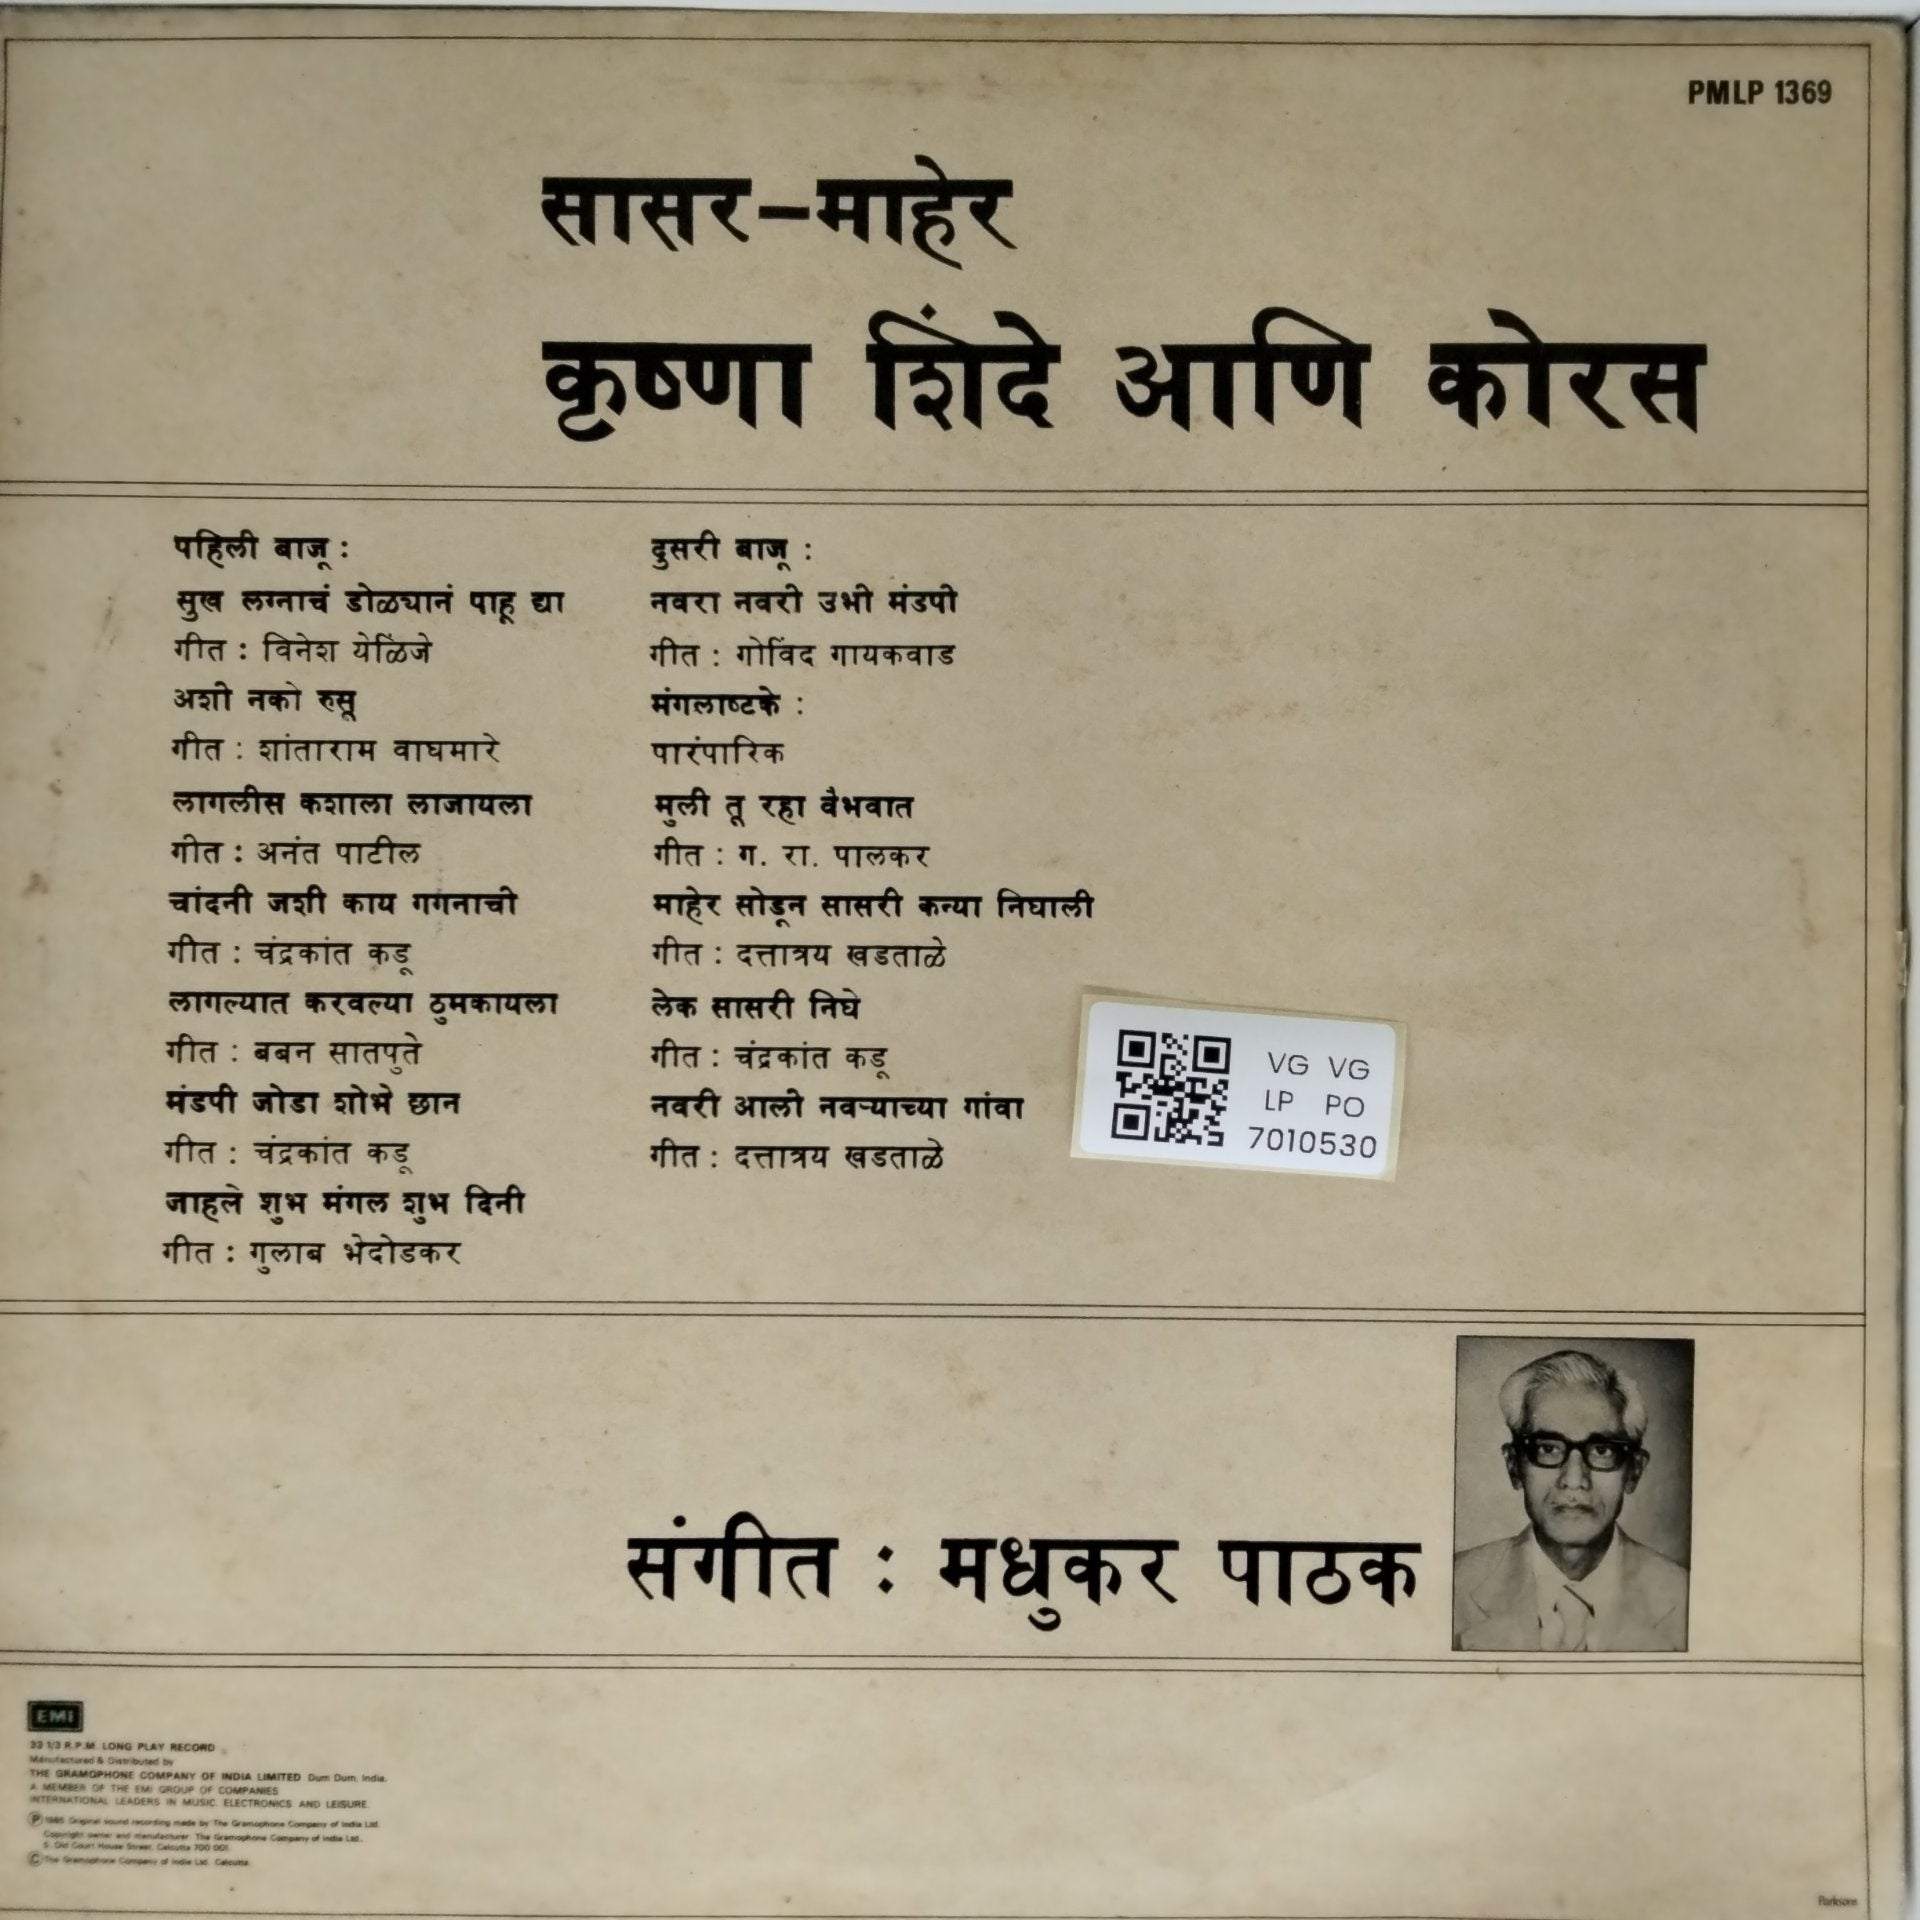 PMLP 1369
सासर–माहेर
कृष्णा शिंदे आणि कोरस
पहिली बाजू :
सुख लग्नाचं डोळ्यानं पाहू द्या
गीत : विनेश येळिंजे
अशी नको रुसू
गीत : शांताराम वाघमारे
लागलीस कशाला लाजायला
गीत : अनंत पाटील
चांदनी जशी काय गगनाची
गीत : चंद्रकांत कडू
लागल्यात करवल्या ठुमकायला
गीत : बबन सातपुते
मंडपी जोडा शोभे छान
गीत : चंद्रकांत कडू
जाहले शुभ मंगल शुभ दिनी
गीत : गुलाब भेदोडकर
दुसरी बाजू :
नवरा नवरी उभी मंडपी
गीत : गोविंद गायकवाड
मंगलाष्टके :
पारंपारिक
मुली तू रहा वैभवात
गीत : ग. रा. पालकर
माहेर सोडून सासरी कन्या निघाली
गीत : दत्तात्रय खडताळे
लेक सासरी निघे
गीत : चंद्रकांत कडू
नवरी आली नवऱ्याच्या गांवा
गीत : दत्तात्रय खडताळे
VG VG
LP PO
7010530
संगीत : मधुकर पाठक
EMI
33 1/3 R.P.M. LONG PLAY RECORD
Manufactured & Distributed by
THE GRAMOPHONE COMPANY OF INDIA LIMITED Dum Dum, India.
A MEMBER OF THE EMI GROUP OF COMPANIES
INTERNATIONAL LEADERS IN MUSIC, ELECTRONICS AND LEISURE.
Ⓟ 1985 Original sound recording made by The Gramophone Company of India Ltd.
Copyright owner and manufacturer: The Gramophone Company of India Ltd.,
5, Old Court House Street, Calcutta 700 001.
© The Gramophone Company of India Ltd. Calcutta.
Parksons